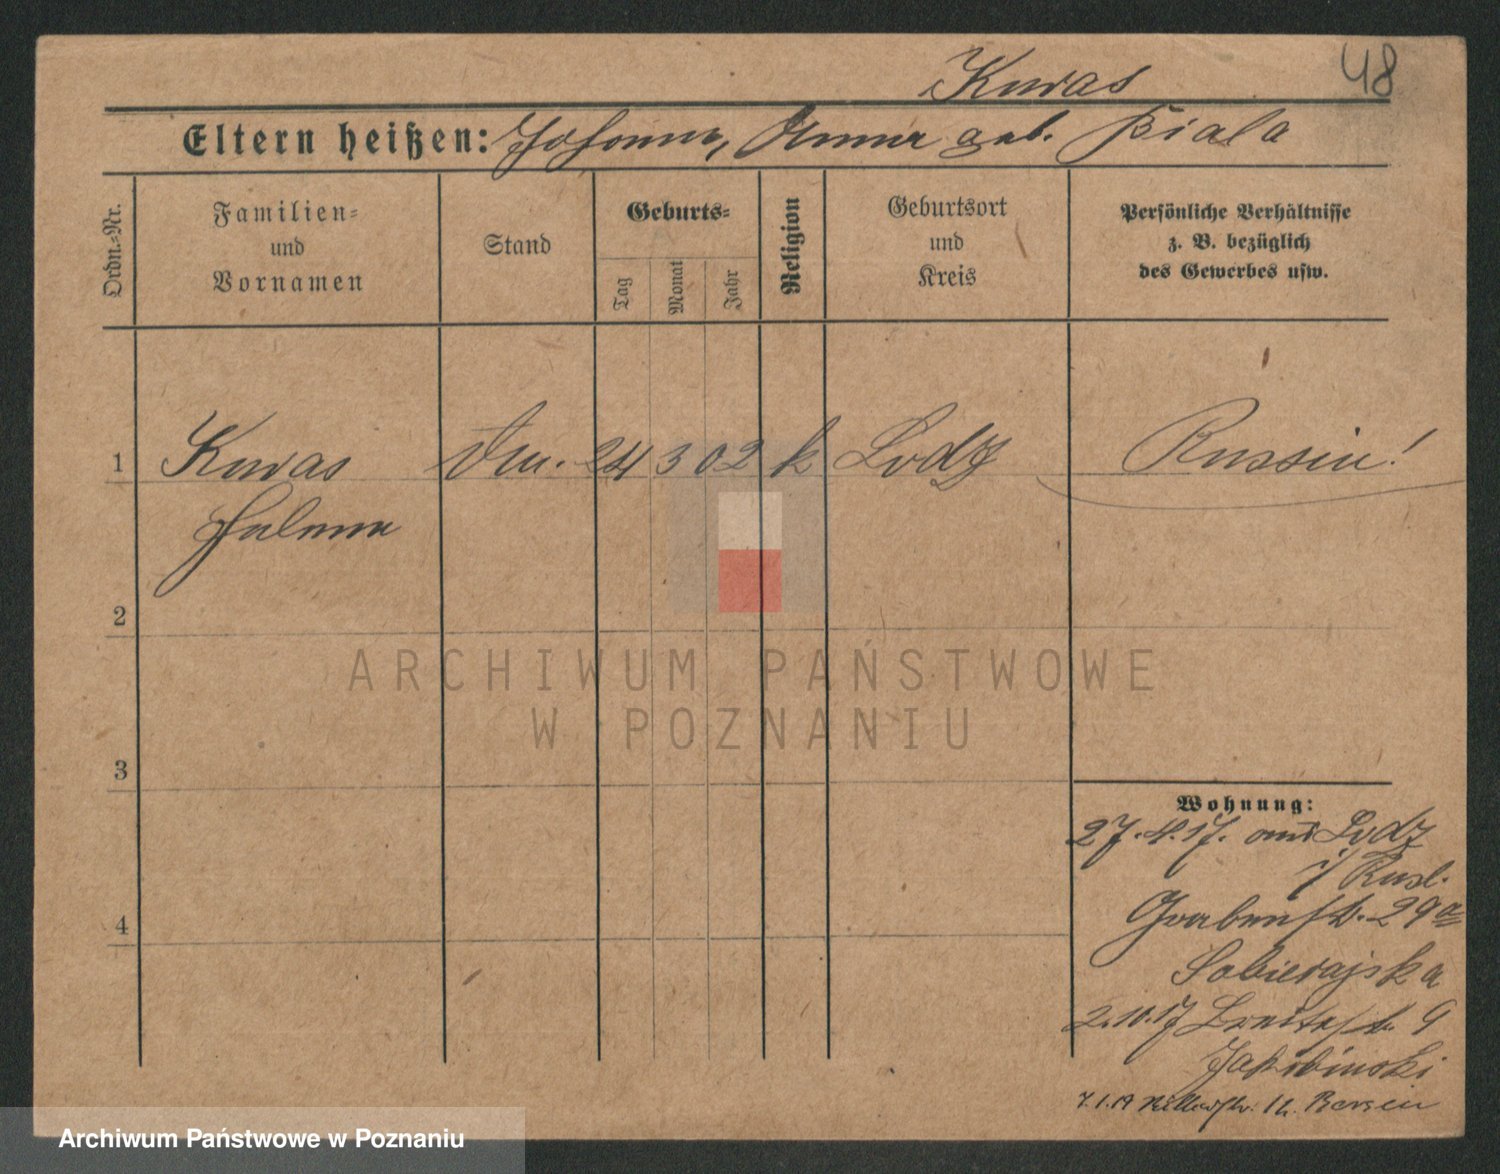 Kuras
48
Eltern heißen: Johann, Anna geb. Biala
Ordn.-Nr.
Familien-
und
Vornamen
Stand
Geburts-
Tag
Monat
Jahr
Religion
Geburtsort
und
Kreis
Persönliche Verhältnisse
z. B. bezüglich
des Gewerbes usw.
1 Kuras 24 3 02 k Lodz Russin!
Helena
2
3
4
Wohnung:
27.4.17. aus Lodz
i/ Rusl.
Grabenstr. 29a
Sobierajska
2.10.17 Breitestr. 9
Jakubinski
7.1.19
ARCHIWUM PAŃSTWOWE
W POZNANIU
Archiwum Państwowe w Poznaniu